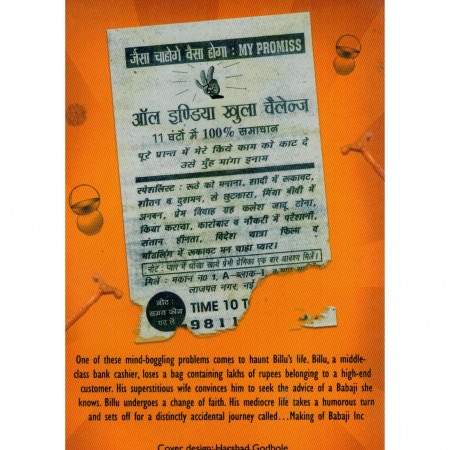 जैसा चाहोगे वैसा होगा : MY PROMISS
ऑल इण्डिया खुला चैलेन्ज
11 घंटों में 100% समाधान
पूरे प्रान्त में मेरे किये काम को काट दे
उसे मुँह मांगा इनाम
स्पेशलिस्ट : रूठे को मनाना, शादी में रूकावट,
शौतन व दुशमन, से छुटकारा, मिंया बीवी में
अनबन, प्रेम विवाह गृह कलेश जादू टोना,
किया कराया, कारोबार व नौकरी में परेशानी,
संतान हीनता, विदेश यात्रा फिल्म व
मॉडलिंग में रूकावट मन चाहा प्यार।
नोट : प्यार में धोखा खाये प्रेमी प्रेमिका एक बार अवश्य मिलें।
मिलें : मकान नं0 1, A-ब्लाक-1,
लाजपत नगर, नई
नोट :
समय फोन
पर लें
TIME 10 TO
9811
One of these mind-boggling problems comes to haunt Billu's life. Billu, a middle-
class bank cashier, loses a bag containing lakhs of rupees belonging to a high-end
customer. His superstitious wife convinces him to seek the advice of a Babaji she
knows. Billu undergoes a change of faith. His mediocre life takes a humorous turn
and sets off for a distinctly accidental journey called...Making of Babaji Inc
Cover design: Harshad Godbole